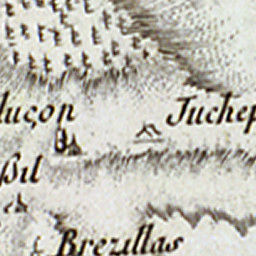 luçon
Juchep
ßil
Brezillas